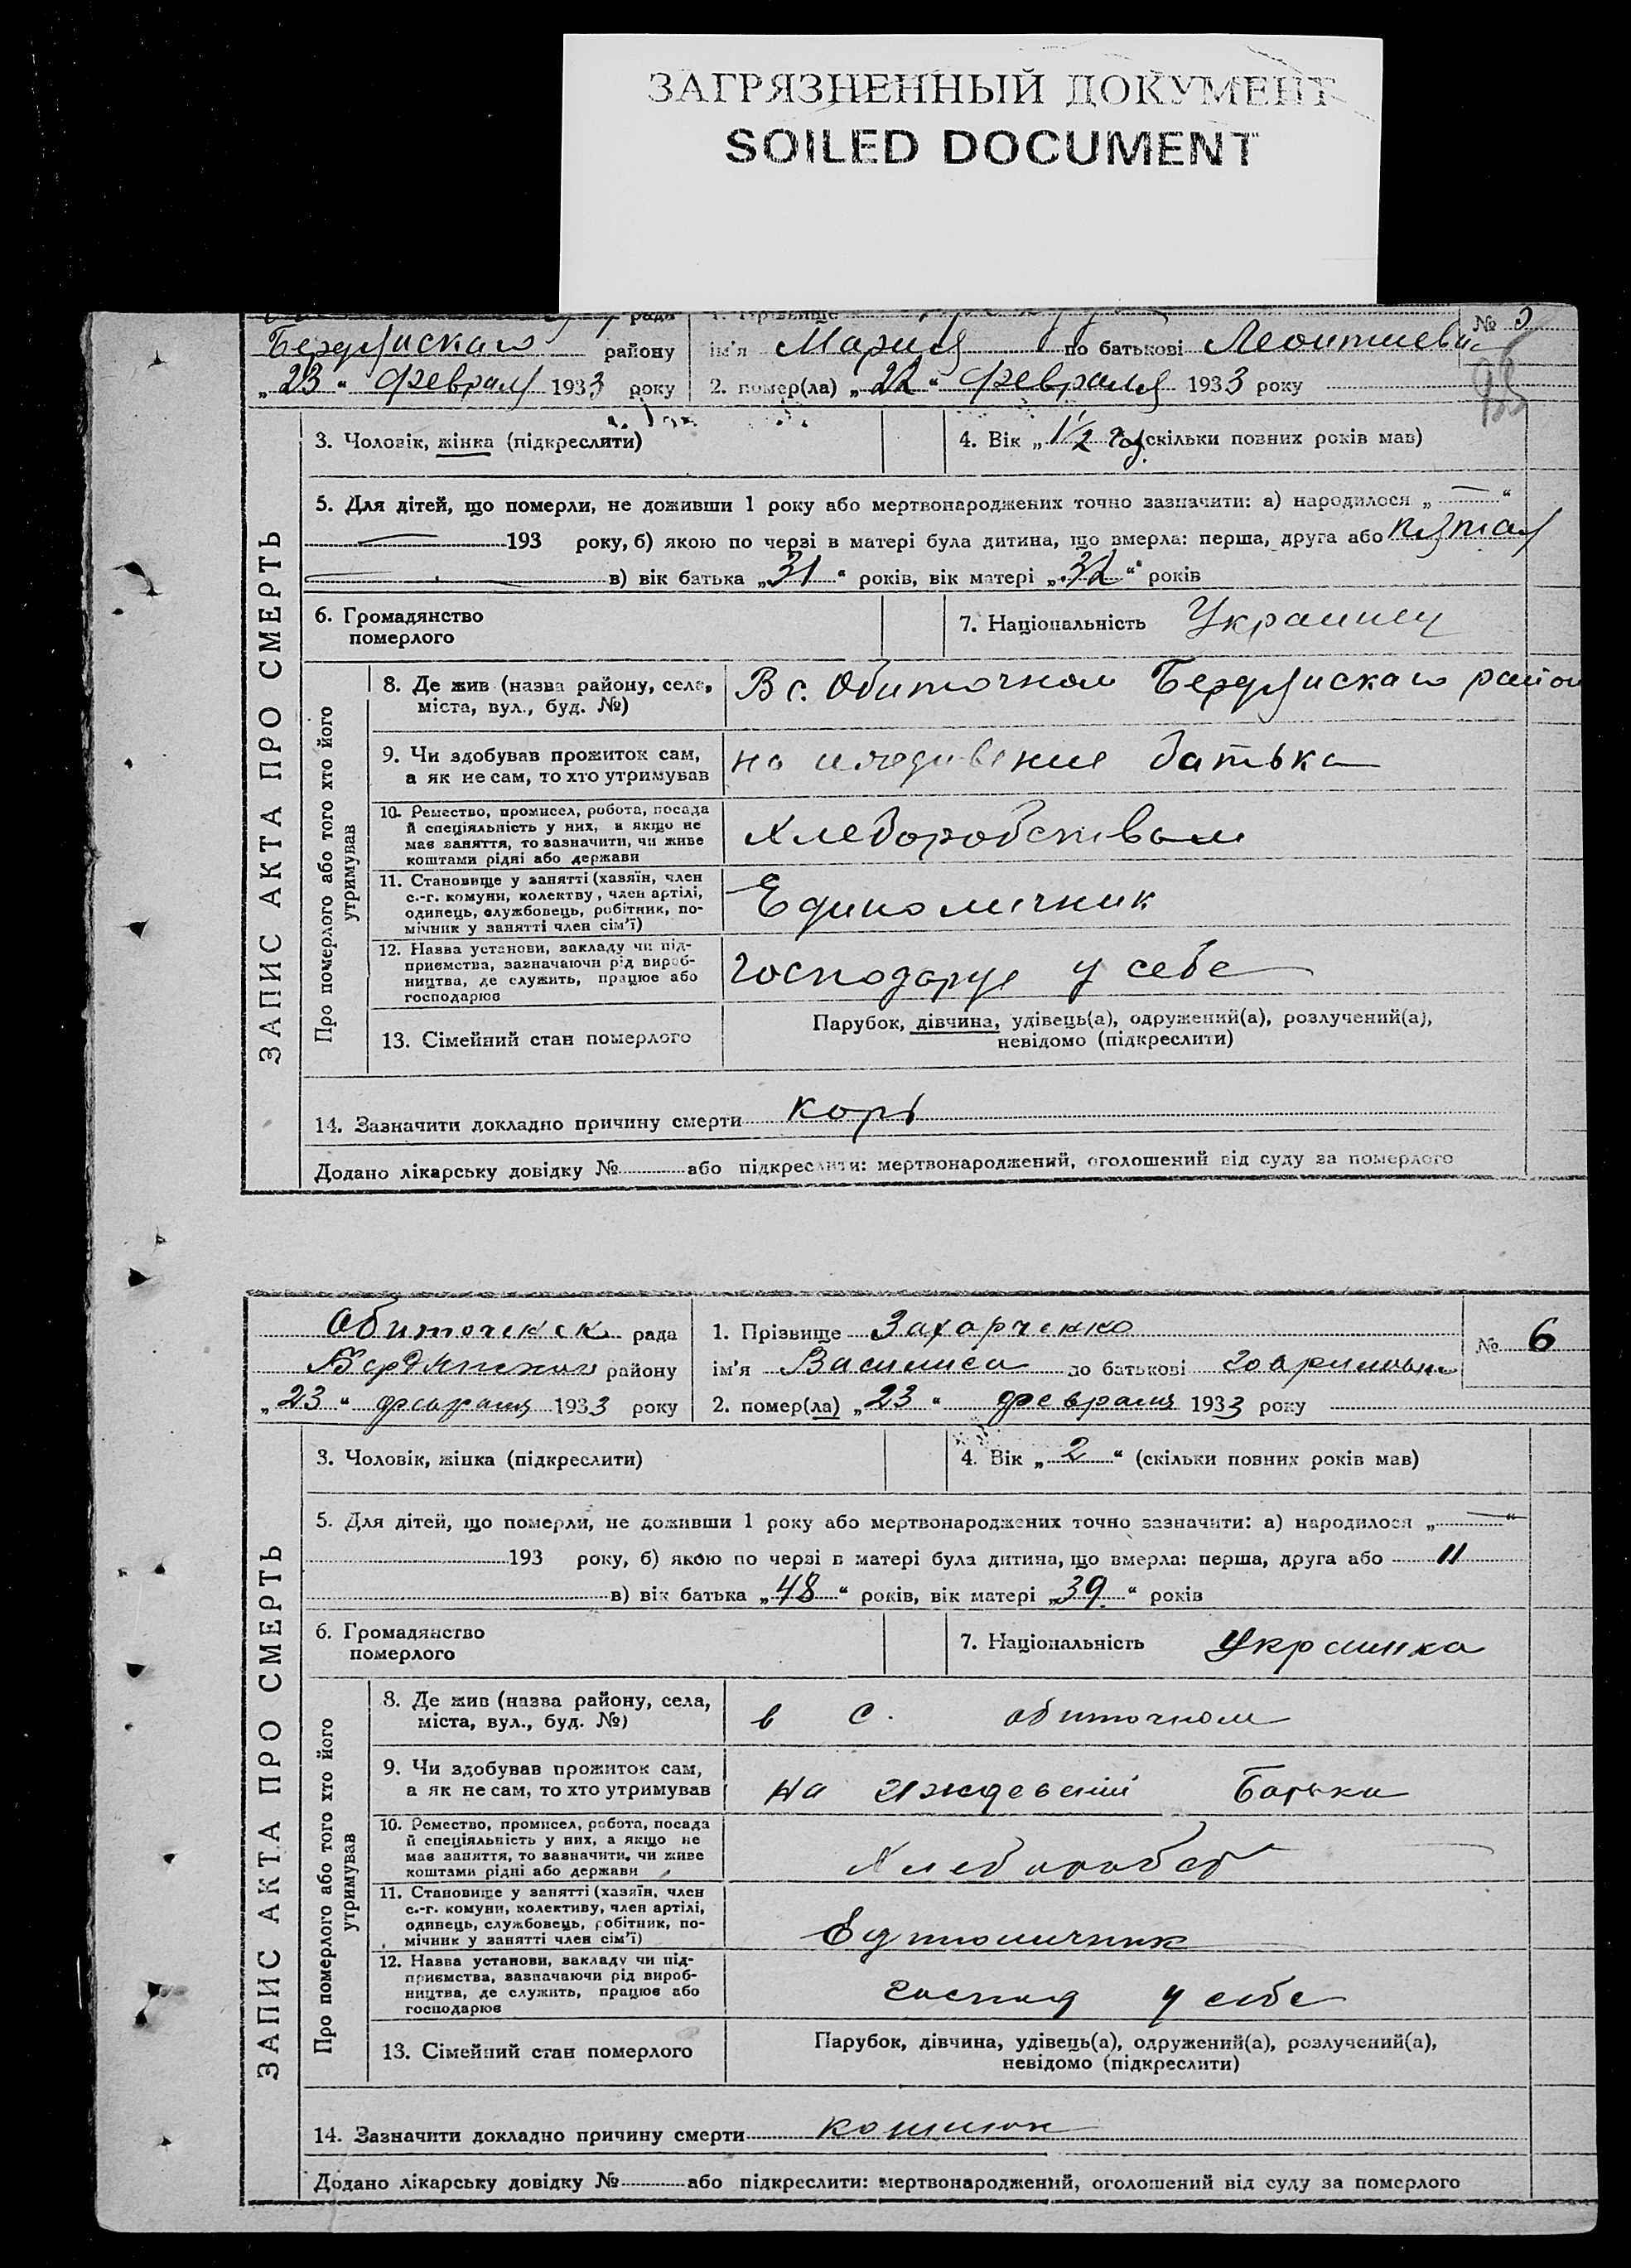 ЗАГРЯЗНЕННЫЙ ДОКУМЕНТ
SOILED DOCUMENT
рада 1. Прізвище № 5
Бердянскаго району ім'я Мария по батькові Леонтиевна
„23“ февраля 1933 року 2. помер(ла) „22“ февраля 1933 року
3. Чоловік, жінка (підкреслити) 4. Вік „1 1/2 год. (скільки повних років мав)
5. Для дітей, що померли, не доживши 1 року або мертвонароджених точно зазначити: а) народилося „—“
— 193 року, б) якою по черзі в матері була дитина, що вмерла: перша, друга або пятая
в) вік батька „31“ років, вік матері „32“ років
6. Громадянство померлого 7. Національність Украинец
ЗАПИС АКТА ПРО СМЕРТЬ
Про померлого або того хто його утримував
8. Де жив (назва району, села, міста, вул., буд. №) В с. Обиточном Бердянскаго район
9. Чи здобував прожиток сам, а як не сам, то хто утримував на иждивение батька
10. Ремество, промисел, робота, посада й спеціяльність у них, а якщо не має заняття, то зазначити, чи живе коштами рідні або держави Хлеборобством
11. Становище у занятті (хазяїн, член с.-г. комуни, колектву, член артілі, одинець, службовець, робітник, помічник у занятті член сім'ї) Единоличник
12. Назва установи, закладу чи підприємства, зазначаючи рід виробництва, де служить, працює або господарює Господарує у себе
13. Сімейний стан померлого Парубок, дівчина, удівець(а), одружений(а), розлучений(а), невідомо (підкреслити)
14. Зазначити докладно причину смерти корь
Додано лікарську довідку № або підкреслити: мертвонароджений, оголошений від суду за померлого
Обиточекск рада 1. Прізвище Захарченко № 6
Бердянскаго району ім'я Василиса по батькові
„23“ февраля 1933 року 2. помер(ла) „23“ февраля 1933 року
3. Чоловік, жінка (підкреслити) 4. Вік „2“ (скільки повних років мав)
5. Для дітей, що померли, не доживши 1 року або мертвонароджених точно зазначити: а) народилося „—“
193 року, б) якою по черзі в матері була дитина, що вмерла: перша, друга або 11
в) вік батька „48“ років, вік матері „39“ років
6. Громадянство померлого 7. Національність Украинка
ЗАПИС АКТА ПРО СМЕРТЬ
Про померлого або того хто його утримував
8. Де жив (назва району, села, міста, вул., буд. №) в с. обиточном
9. Чи здобував прожиток сам, а як не сам, то хто утримував на Батька
10. Ремество, промисел, робота, посада й спеціяльність у них, а якщо не має заняття, то зазначити, чи живе коштами рідні або держави
11. Становище у занятті (хазяїн, член с.-г. комуни, колективу, член артілі, одинець, службовець, робітник, помічник у занятті член сім'ї) Единоличник
12. Назва установи, закладу чи підприємства, зазначаючи рід виробництва, де служить, працює або господарює господ у себе
13. Сімейний стан померлого Парубок, дівчина, удівець(а), одружений(а), розлучений(а), невідомо (підкреслити)
14. Зазначити докладно причину смерти
Додано лікарську довідку № або підкреслити: мертвонароджений, оголошений від суду за померлого